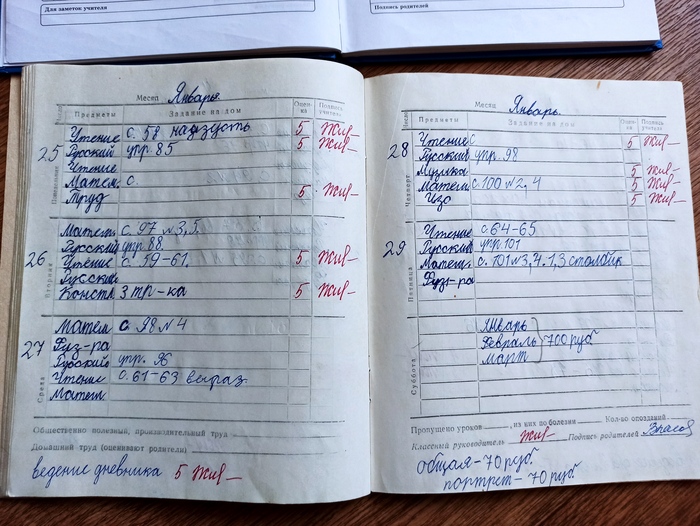 Для заметок учителя
Подпись родителей
Месяц Январь
Число Предметы Задание на дом Оцен-ка Подпись учителя
25 Понедельник
Чтение с. 58 наизусть 5
Русский упр. 85 5
Чтение
Матем. с.
Труд 5
26 Вторник
Матем. с. 97 №3,5.
Русский упр. 88.
Чтение с. 59-61. 5
Русский
Констр. 3 тр-ка 5
27 Среда
Матем с. 98 №4
Физ-ра
Русский упр. 96
Чтение с. 61-63 выраз.
Матем.
Общественно полезный, производительный труд
Домашний труд (оценивают родители)
ведение дневника 5
Месяц Январь
Число Предметы Задание на дом Оцен-ка Подпись учителя
28 Четверг
Чтение с 5
Русский упр. 98
Музыка 5
Матем с. 100 №2, 4 5
Изо 5
29 Пятница
Чтение с 64-65
Русский упр 101
Матем. с. 101 №3, 4. 1,3 столбик
Физ-ра
Суббота
Январь
Февраль 700 руб
март
Пропущено уроков , из них по болезни Кол-во опозданий
Классный руководитель Подпись родителей
общая - 70 руб.
портрет - 70 руб.